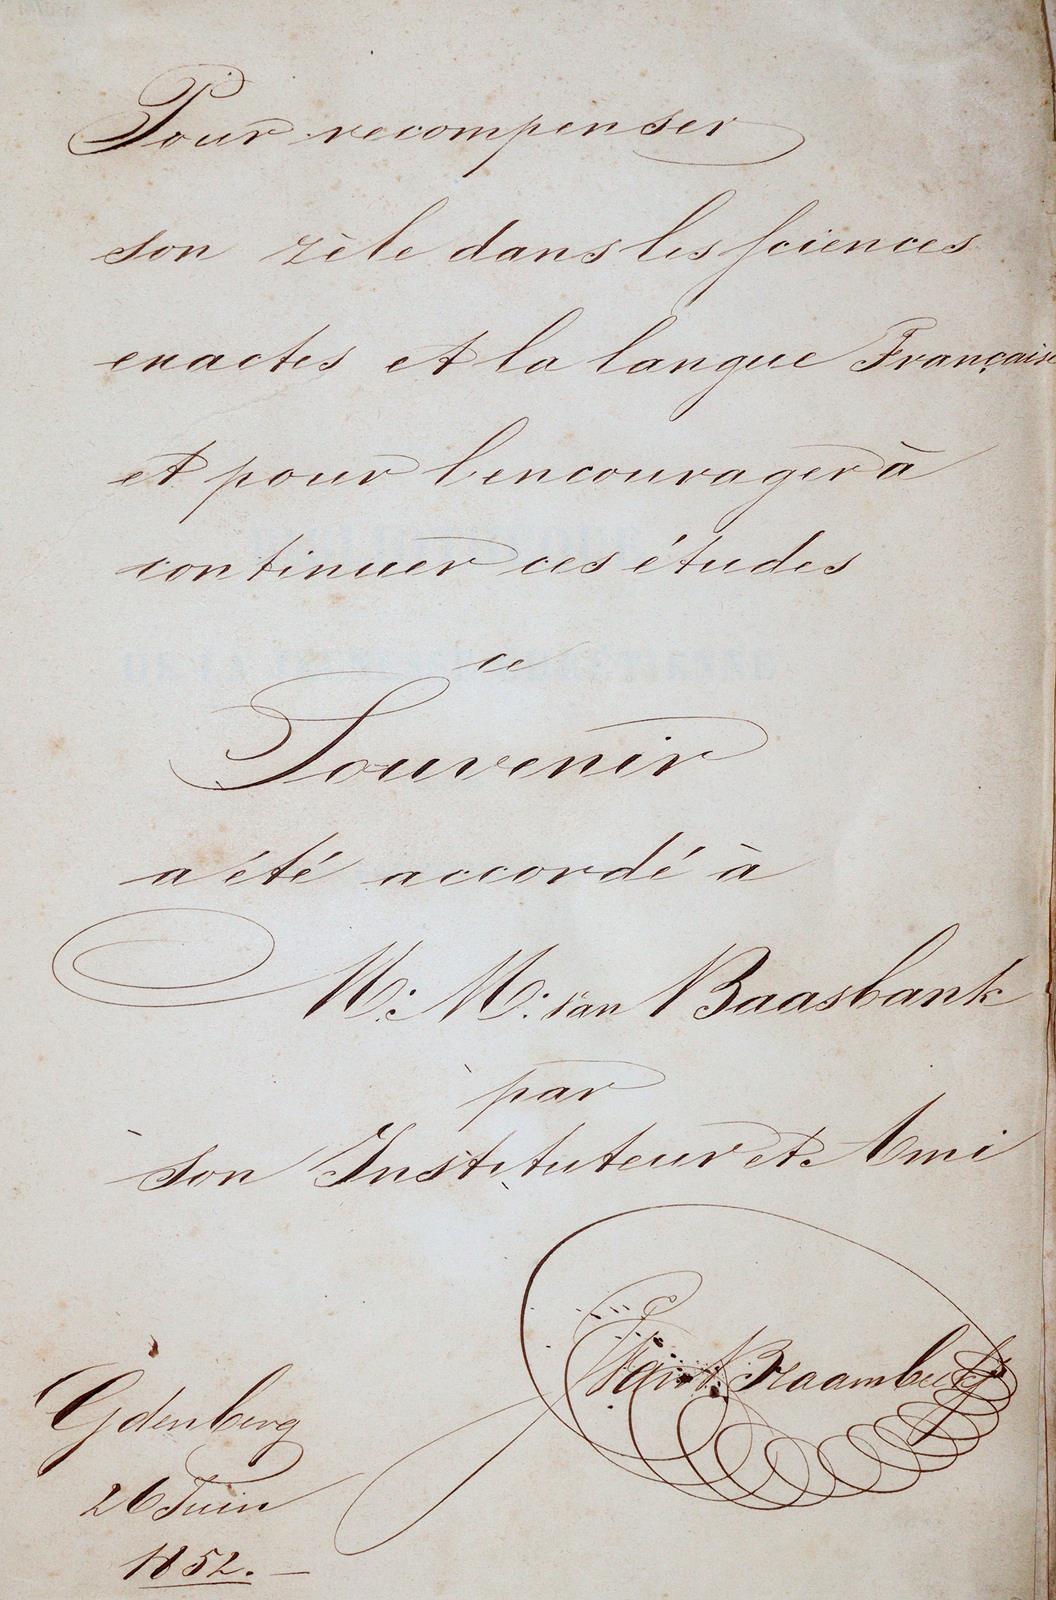 Pour recompenser
son zèle dans les sciences
exactes et la langue Français
et pour l'encourager à
continuer ces études
ce
Souvenir
a été accordé à
M: M: van Baasbank
par
son Instituteur et Ami
van Braambeek
26 Juin
1852. —